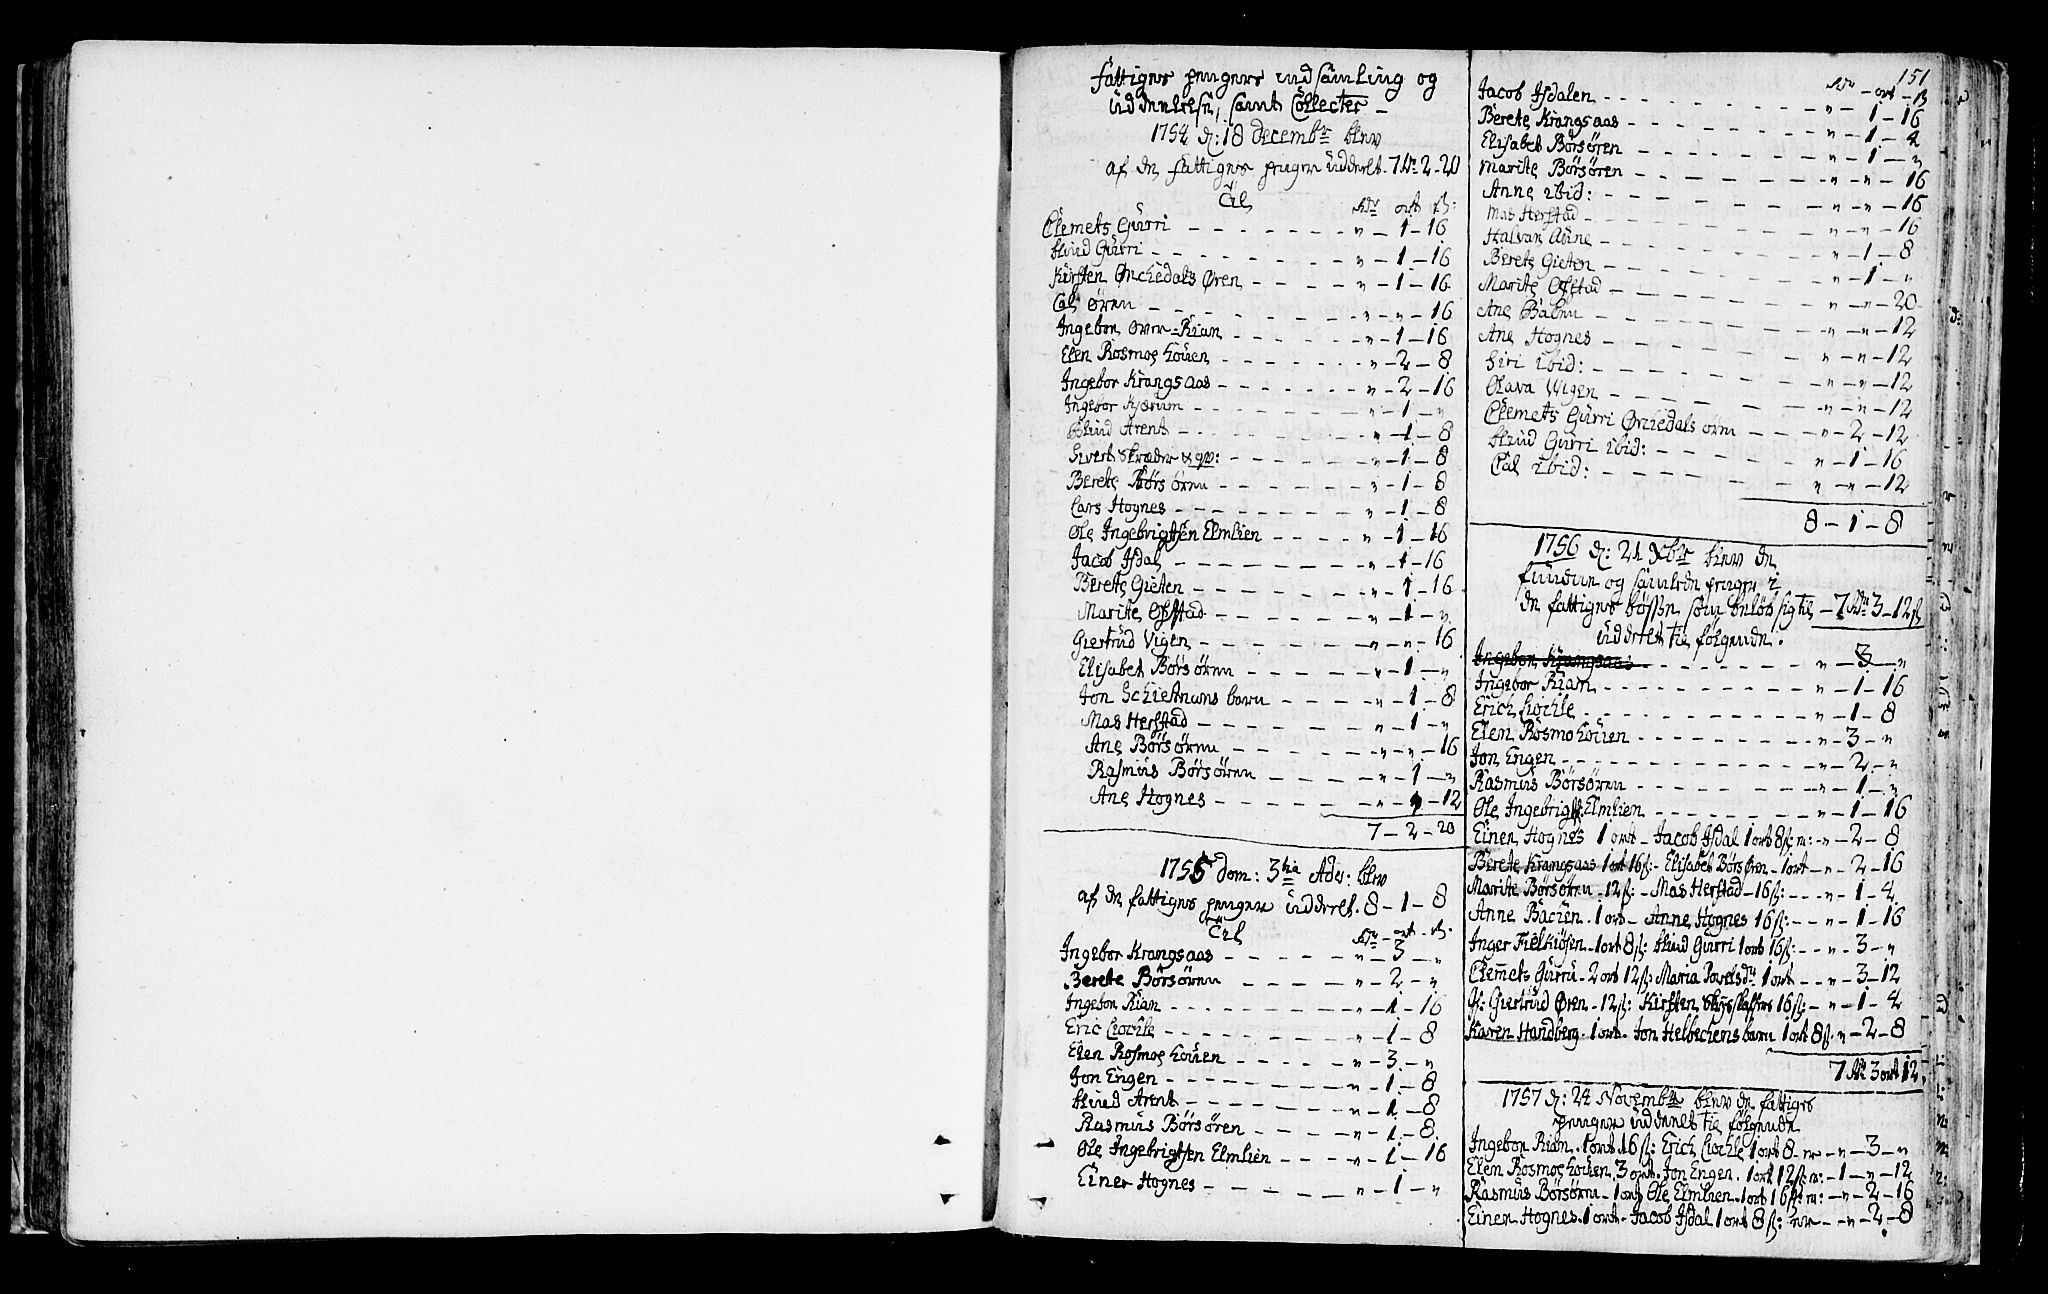 Fattiges penges indsamling og
uddeelelse, samt Collecter
1754 d: 18 Decembr blev
af de fattiges penge uddeelt. 7 rdr 2 - 20
Til
rdr ort ſs:
Clemets Gurri - " - 1 - 16
blind Gurri - " - 1 - 16
Kirsten Ørchedals Øren - " - 1 - 16
Cal øren - " - " - 16
Ingebor over-Rian - " - 1 - 16
Elen Rosmoe houen - " - 2 - 8
Ingebor Krangsaas - " - 2 - 16
Ingebor Kjærum - " - 1 - "
Blind Arent - " - 1 - 8
Sivert skræder - " - 1 - 8
Berete Børsøren - " - 1 - 8
Lars Hognes - " - 1 - 8
Ole Ingebrigtsen Elmlien - " - 1 - 16
Jacob Isdal - " - 1 - 16
Berete Gieten - " - 1 - 16
Marite Ofstad - " - 1 - "
Giertrud Vigen - " - " - 16
Elisabet Børsøren - " - 1 - "
Jon barn - " - 1 - 8
Mas Herstad - " - 1 - "
Ane Børsøren - " - " - 16
Rasmus Børsøren - " - 1 - "
Ane Hognes - " - 1 - 12
7 - 2 - 20
1755 dom: 3tia Adv: blev
af de fattiges penge uddeelt. 8 - 1 - 8
Til
rdr - ort - ſs.
Ingebor Krangsaas - " - 3 - "
Berete Børsøren - " - 2 - "
Ingebor Rian - " - 1 - 16
Eric Lochle - " - 1 - 8
Elen Rosmoe houen - " - 3 - "
Jon Engen - " - 1 - 8
blind Arent - " - 1 - 8
Rasmus Børsøren - " - 1 - 8
Ole Ingebrigtsen Elmlien - " - 1 - 16
Einer Hognes - " - 1 - "
151
rdr - ort - ſs
Jacob Isdalen - " - 1 - 16
Berete Krangsaas - " - 1 - 4
Elisabet Børsøren - " - 1 - "
Marite Børsøren - " - " - 16
Anne ibid: - " - " - 16
Mas Herstad - " - " - 16
Halvar Aune - " - 1 - 8
Berete Gieten - " - 1 - "
Marite Ofstad - " - " - 20
Ane - " - " - 12
Ane Hognes - " - " - 12
Siri ibid: - " - " - 12
Olava Wigen - " - " - 12
Clemets Gurri Ørchedals øren - " - 2 - 12
blind Gurri ibid: - " - 1 - 16
Cal ibid: - " - " - 12
8 - 1 - 8
1756 d: 21 Xbr blev de
fundne og samlede penge i
de fattiges bøssen som beløb sig til - 7 rdr 3 - 12 ſs
uddeelt til følgende.
Ingebor Krangsaas - " - 3 - "
Ingebor Rian - " - 1 - 16
Erich Lochle - " - 1 - 8
Elen Rosmo houen - " - 3 - "
Jon Engen - " - 2 - "
Rasmus Børsøren - " - 1 - "
Ole Ingebrigts: Elmlien - " - 1 - 16
Einer Hognes 1 ort - Jacob Isdal 1 ort 8 ſs: er: - " - 2 - 8
Berete Krangsaas 1 ort 16 ſs: - Elisabet Børsøren - 1 ort - " - 2 - 16
Marite Børsøren - 12 ſs: - Mas Herstad - 16 ſs: - " - 1 - 4
Anne Bachen - 1 ort - Anne Hognes 16 ſs: - " - 1 - 16
Inger Fielkiøsen - 1 ort 8 ſs: blind Gurri 1 ort 16 ſs: - " - 3 - "
Clemets Gurru - 2 ort 12 ſs Maria Povelsdr 1 ort - " - 3 - 12
Giertrud Øren - 12 ſs: Kirsten 16 ſs: - " - 1 - 4
Karen Handberg - 1 ort - Jon barn 1 ort 8 ſs. - " - 2 - 8
7 rdr 3 ort 12.
1757 d: 24 Novembr blev de fattiges
penge uddeelt til følgende
Ingebor Rian - 1 ort 16 ſs: Erich Lochle 1 ort 8 - er - " - 3 - "
Elen Rosmoe houen 3 ort. Jon Engen - 1 ort 12 ſs: er: - 1 - " - 12
Rasmus Børsøren - 1 ort Ole Elmlien - 1 ort 16 ſs: er: - " - 2 - 16
Einer Hognes - 1 ort - Jacob Isdal 1 ort 8 ſs: er - " - 2 - 8